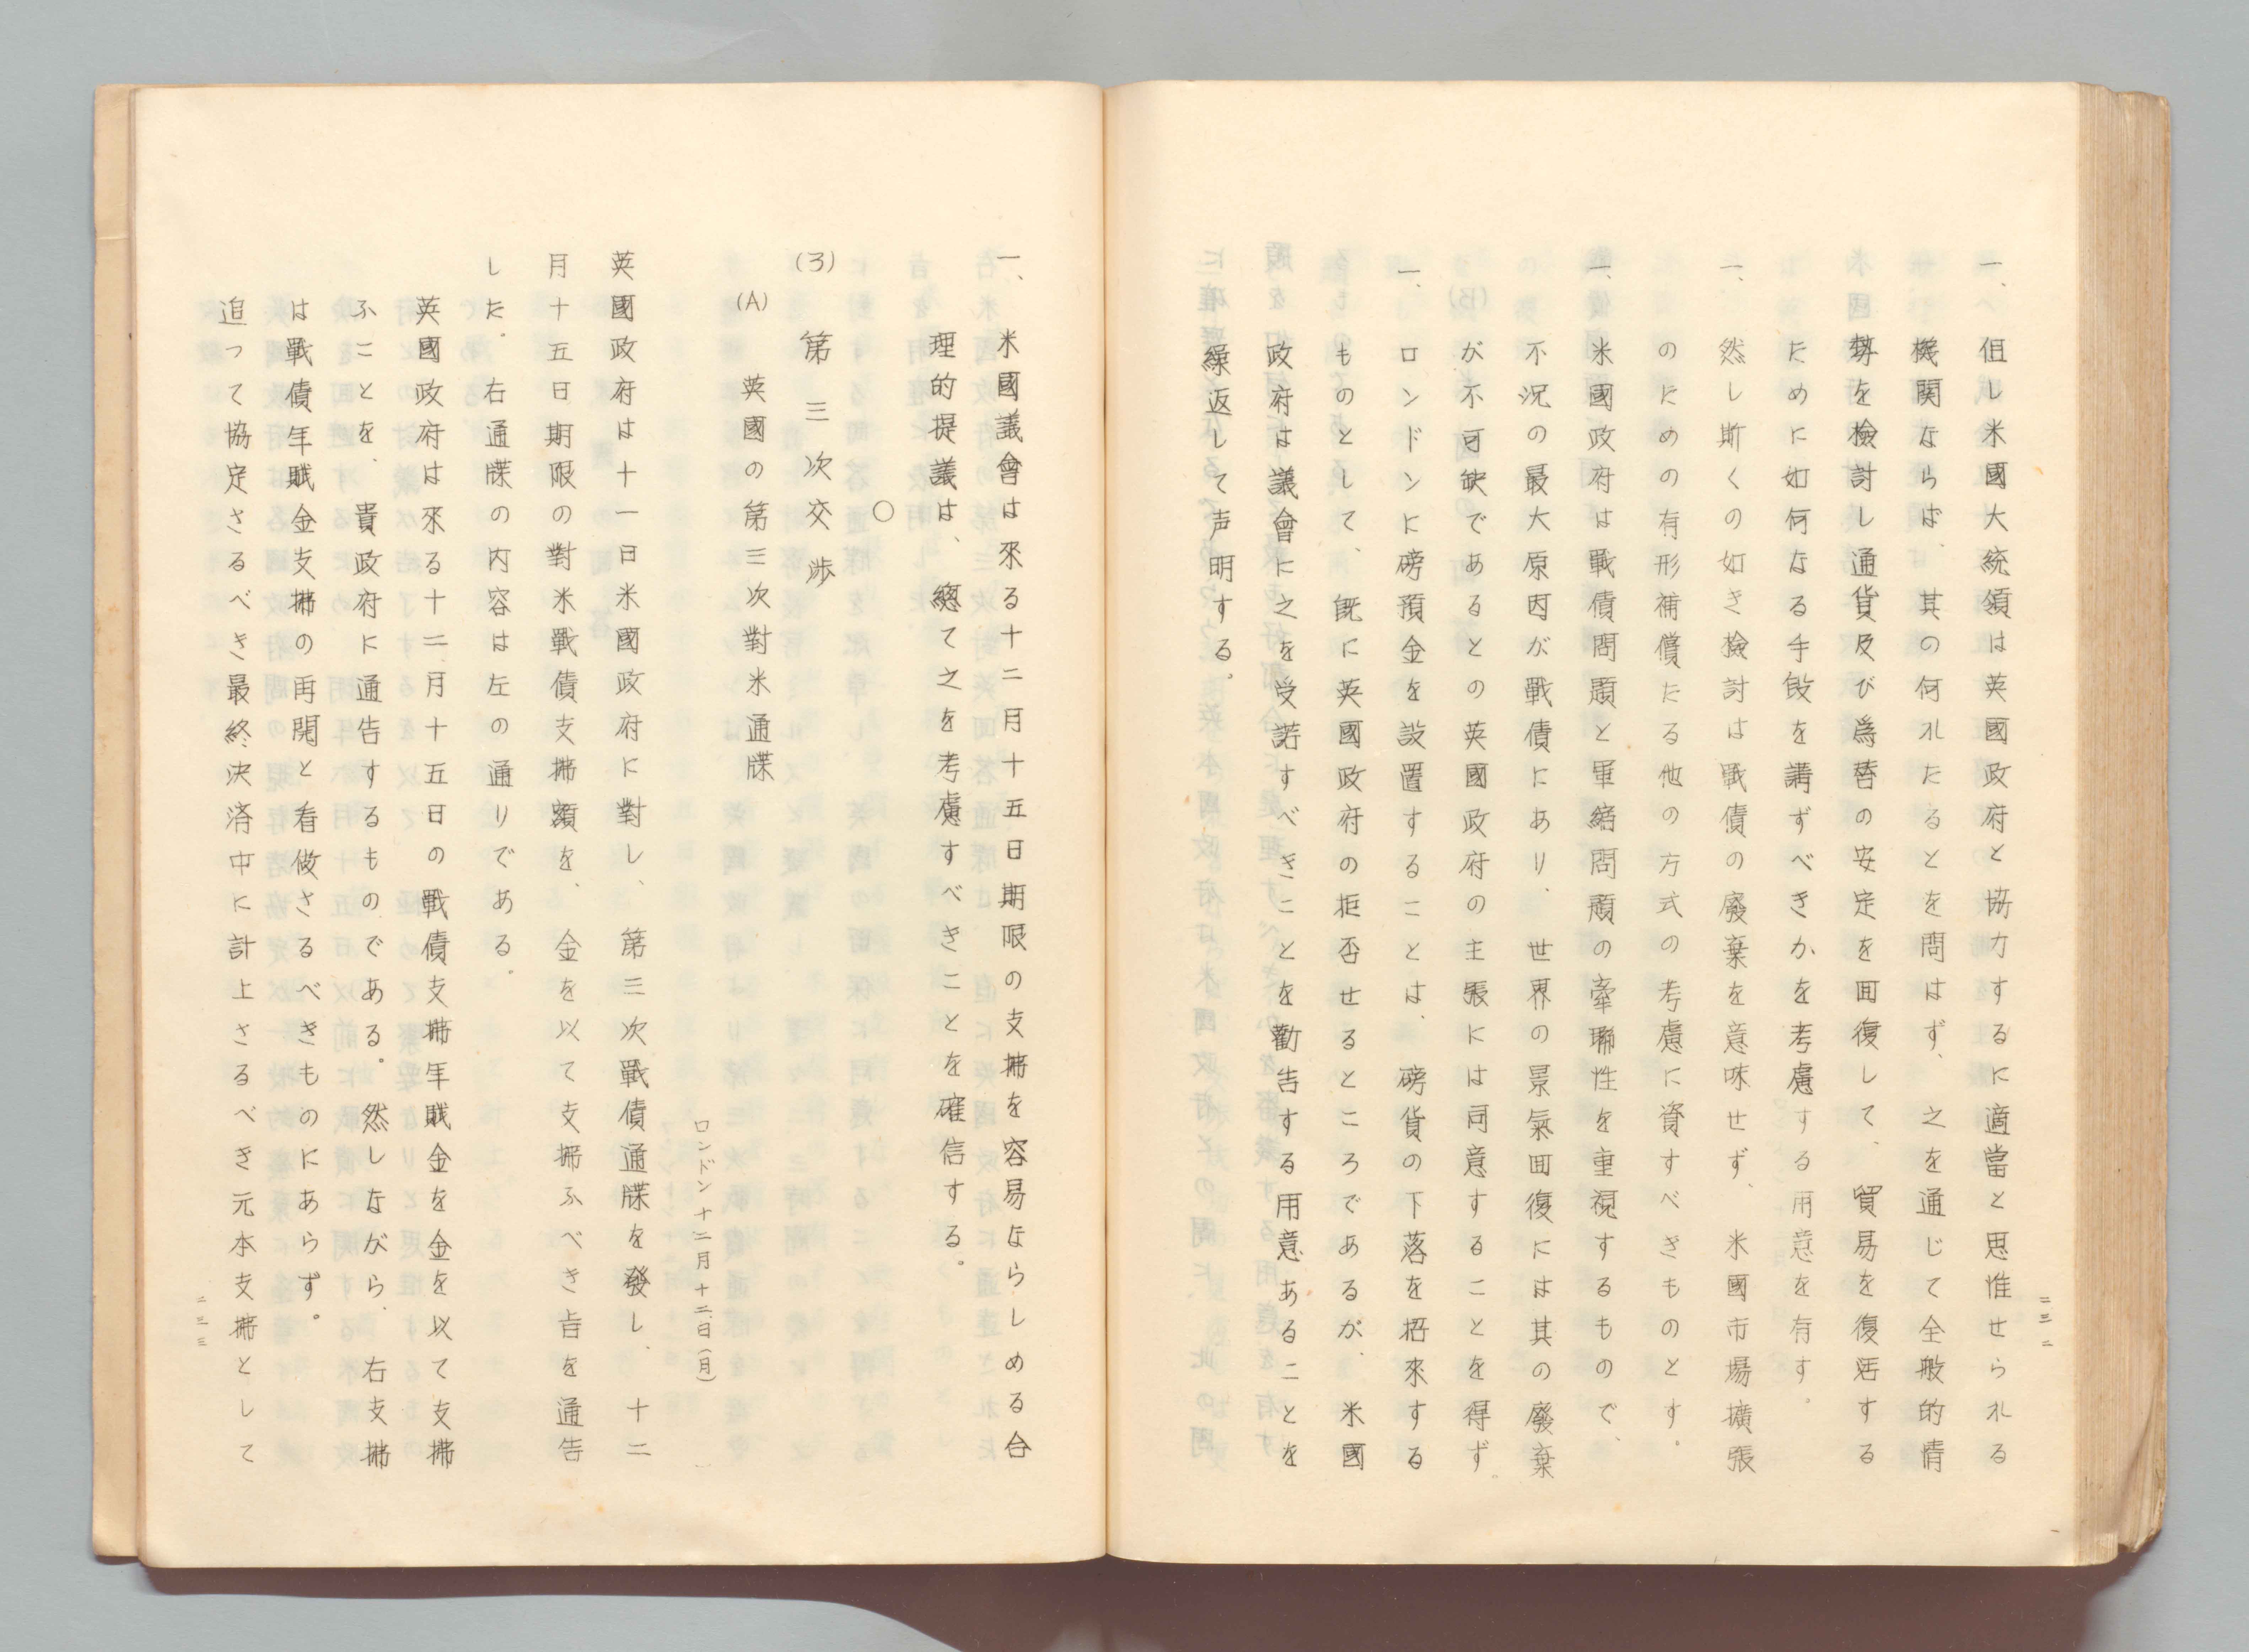 一、但し米國大統領は英國政府と協力するに適當と思惟せられる
機関ならば、其の何れたるとを問はず、之を通じて全般的情
勢を檢討し通貨及び爲替の安定を回復して、貿易を復活する
ために如何なる手段を講ずべきかを考慮する用意を有す。
一、然し斯くの如き檢討は戰債の廢棄を意味せず、米國市場擴張
のための有形補償たる他の方式の考慮に資すべきものとす。
一、米國政府は戰債問題と軍縮問題の牽聯性を重視するもので、
不況の最大原因が戰債にあり、世界の景氣回復には其の廢棄
が不可缺であるとの英國政府の主張には同意することを得ず
一、ロンドンに磅預金を設置することは、磅貨の下落を招來する
ものとして、既に英國政府の拒否せるところであるが、米國
政府は議會に之を受諾すべきことを勸告する用意あることを
繰返して声明する。
二三二
一、米國議會は來る十二月十五日期限の支拂を容易ならしめる合
理的提議は、總て之を考慮すべきことを確信する。
○
(3) 第三次交渉
(A) 英國の第三次對米通牒
ロンドン十二月十二日(月)
英國政府は十一日米國政府に對し、第三次戰債通牒を發し、十二
月十五日期限の對米戰債支拂額を、金を以て支拂ふべき旨を通告
した。右通牒の内容は左の通りである。
英國政府は來る十二月十五日の戰債支拂年賦金を金を以て支拂
ふことを、貴政府に通告するものである。然しながら、右支拂
は戰債年賦金支拂の再開と看做さるべきものにあらず。
追つて協定さるべき最終決済中に計上さるべき元本支拂として
二三三